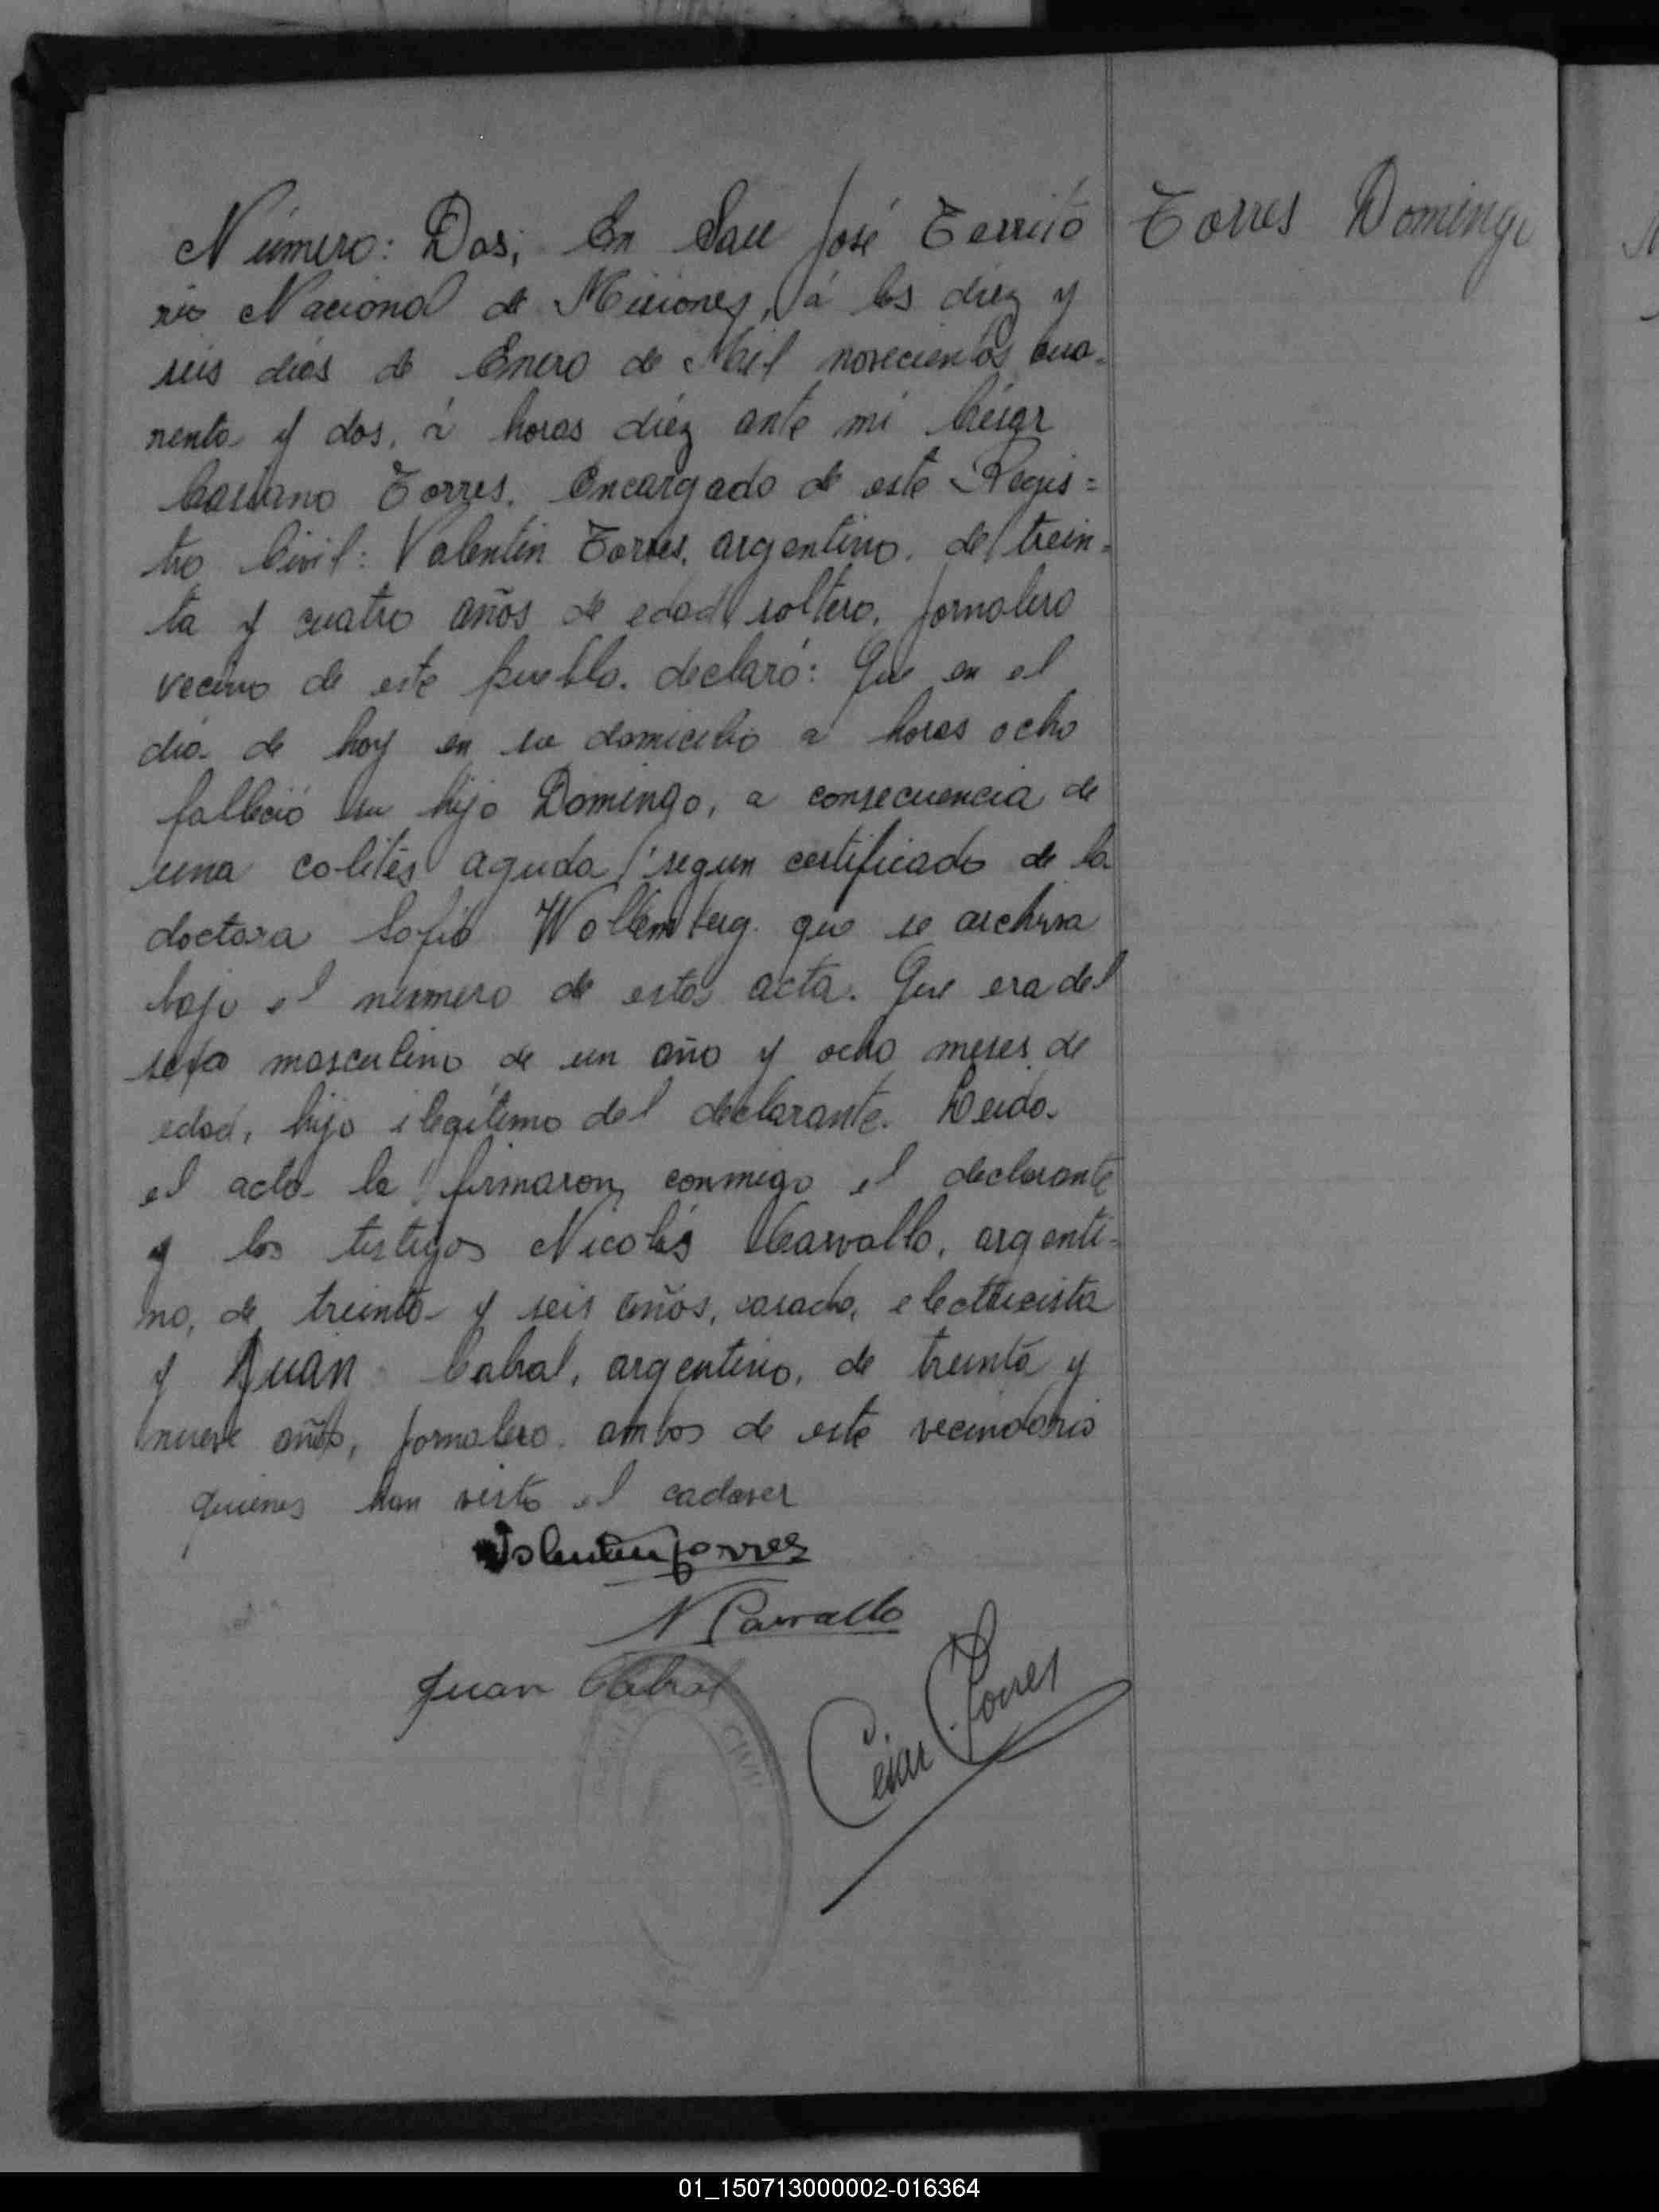 Número: Dos; En San José Territó
rio Nacional de Misiones, á los diez y
seis dias de Enero de Mil novecientos cua-
renta y dos, á horas diéz ante mí César
Casiano Torres, Encargado de este Regis=
tro Civil: Valentin Torres, argentino, de trein-
ta y cuatro años de edad, soltero, jornalero
vecino de este pueblo, declaró: Que en el
dia de hoy en su domicilio a horas ocho
falleció su hijo Domingo, a consecuencia de
una colitis aguda, segun certificado de la
doctora Sofia Wollemberg que se archiva
bajo el numero de esta acta. Que era del
sexo masculino de un año y ocho meses de
edad, hijo ilegítimo del declarante. Leida
el acta la firmaron conmigo el declarante
y los testigos Nicolás Carvallo, argenti-
no, de treinta y seis años, casado, electricista
y Juan Cabral, argentino, de treinta y
nueve años, jornalero, ambos de este vecindario
quienes han visto el cadaver
Valentin Torres
N Carvallo
Juan Cabral
César C. Torres
CIVIL
Torres Domingo
01_150713000002-016364